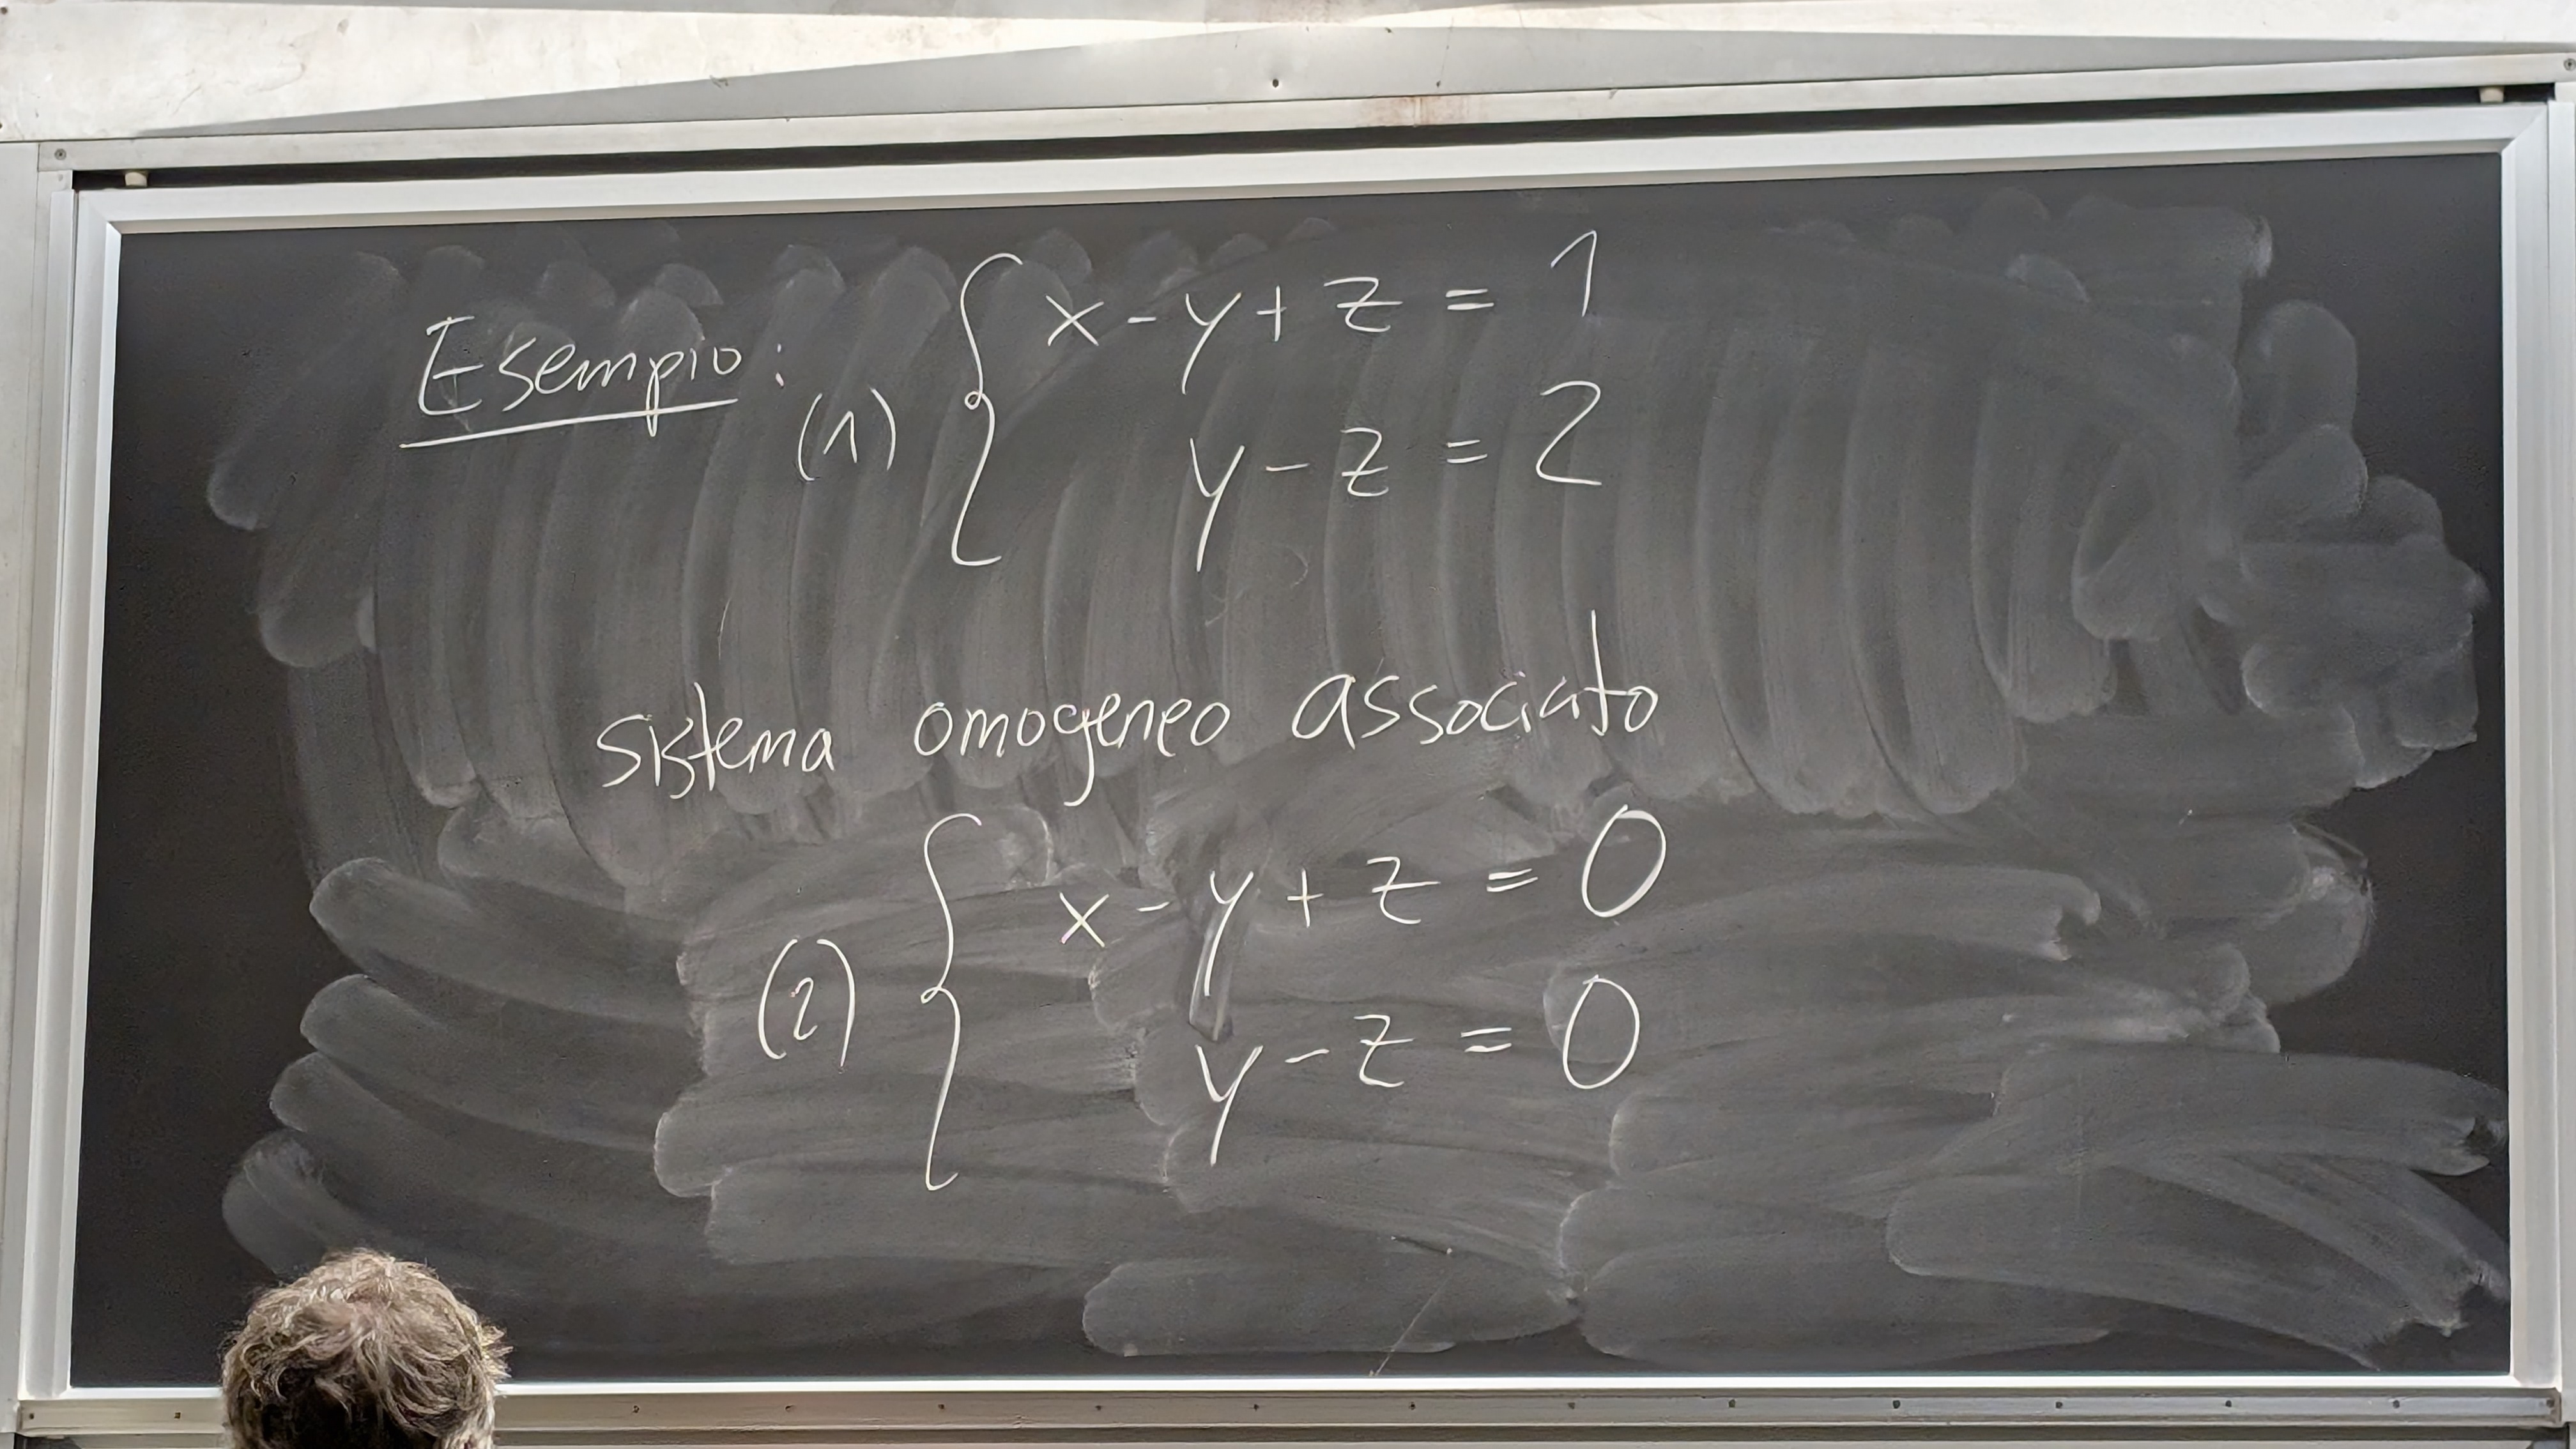 Esempio:
(1) { x - y + z = 1
y - z = 2
sistema omogeneo associato
(2) { x - y + z = 0
y - z = 0